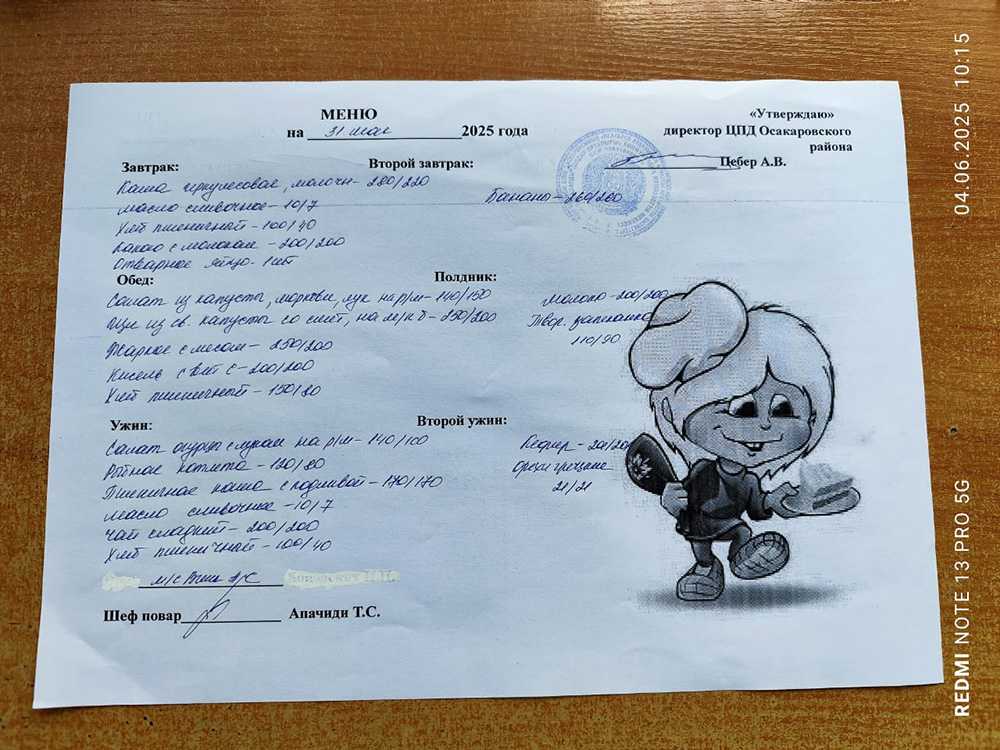 МЕНЮ
на 31 мая 2025 года
«Утверждаю»
директор ЦПД Осакаровского
района
Цебер А.В.
Завтрак:
Каша геркулесовая, молочн- 280/220
Масло сливочное - 10/7
Хлеб пшеничный - 100/40
Какао с молоком - 200/200
Отварное яйцо - 1 шт
Второй завтрак:
Банано - 260/260
Обед:
Салат из капусты, моркови, лук на р/м - 140/150
Щи из св. капусты со смет, на м/к б - 250/200
Жаркое с мясом - 250/200
Кисель с вит С - 200/200
Хлеб пшеничный - 150/80
Полдник:
Молоко - 200/200
Твор. запеканка
110/90
Ужин:
Салат огурцы с луком на р/м - 140/100
Рыбная котлета - 120/80
Пшеничная каша с подливой - 170/170
Масло сливочное - 10/7
Чай сладкий - 200/200
Хлеб пшеничный - 100/40
Второй ужин:
Кефир - 200/200
Орехи грецкие
21/21
м/с
Шеф повар Апачиди Т.С.
REDMI NOTE 13 PRO 5G 04.06.2025 10:15